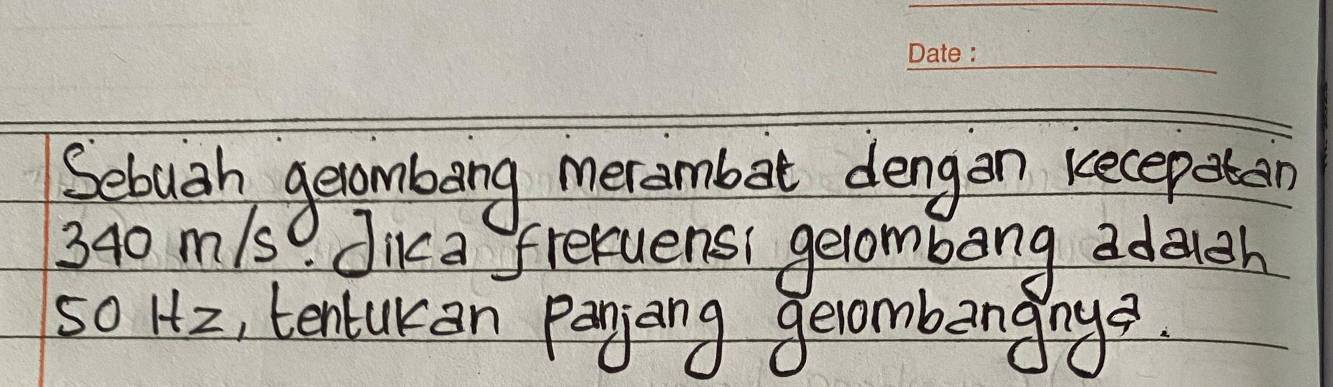 Date :
Sebuah gelombang merambat dengan kecepatan
340 m/s. Jika frekuensi gelombang adalah
50 Hz, tentukan panjang gelombangnya.